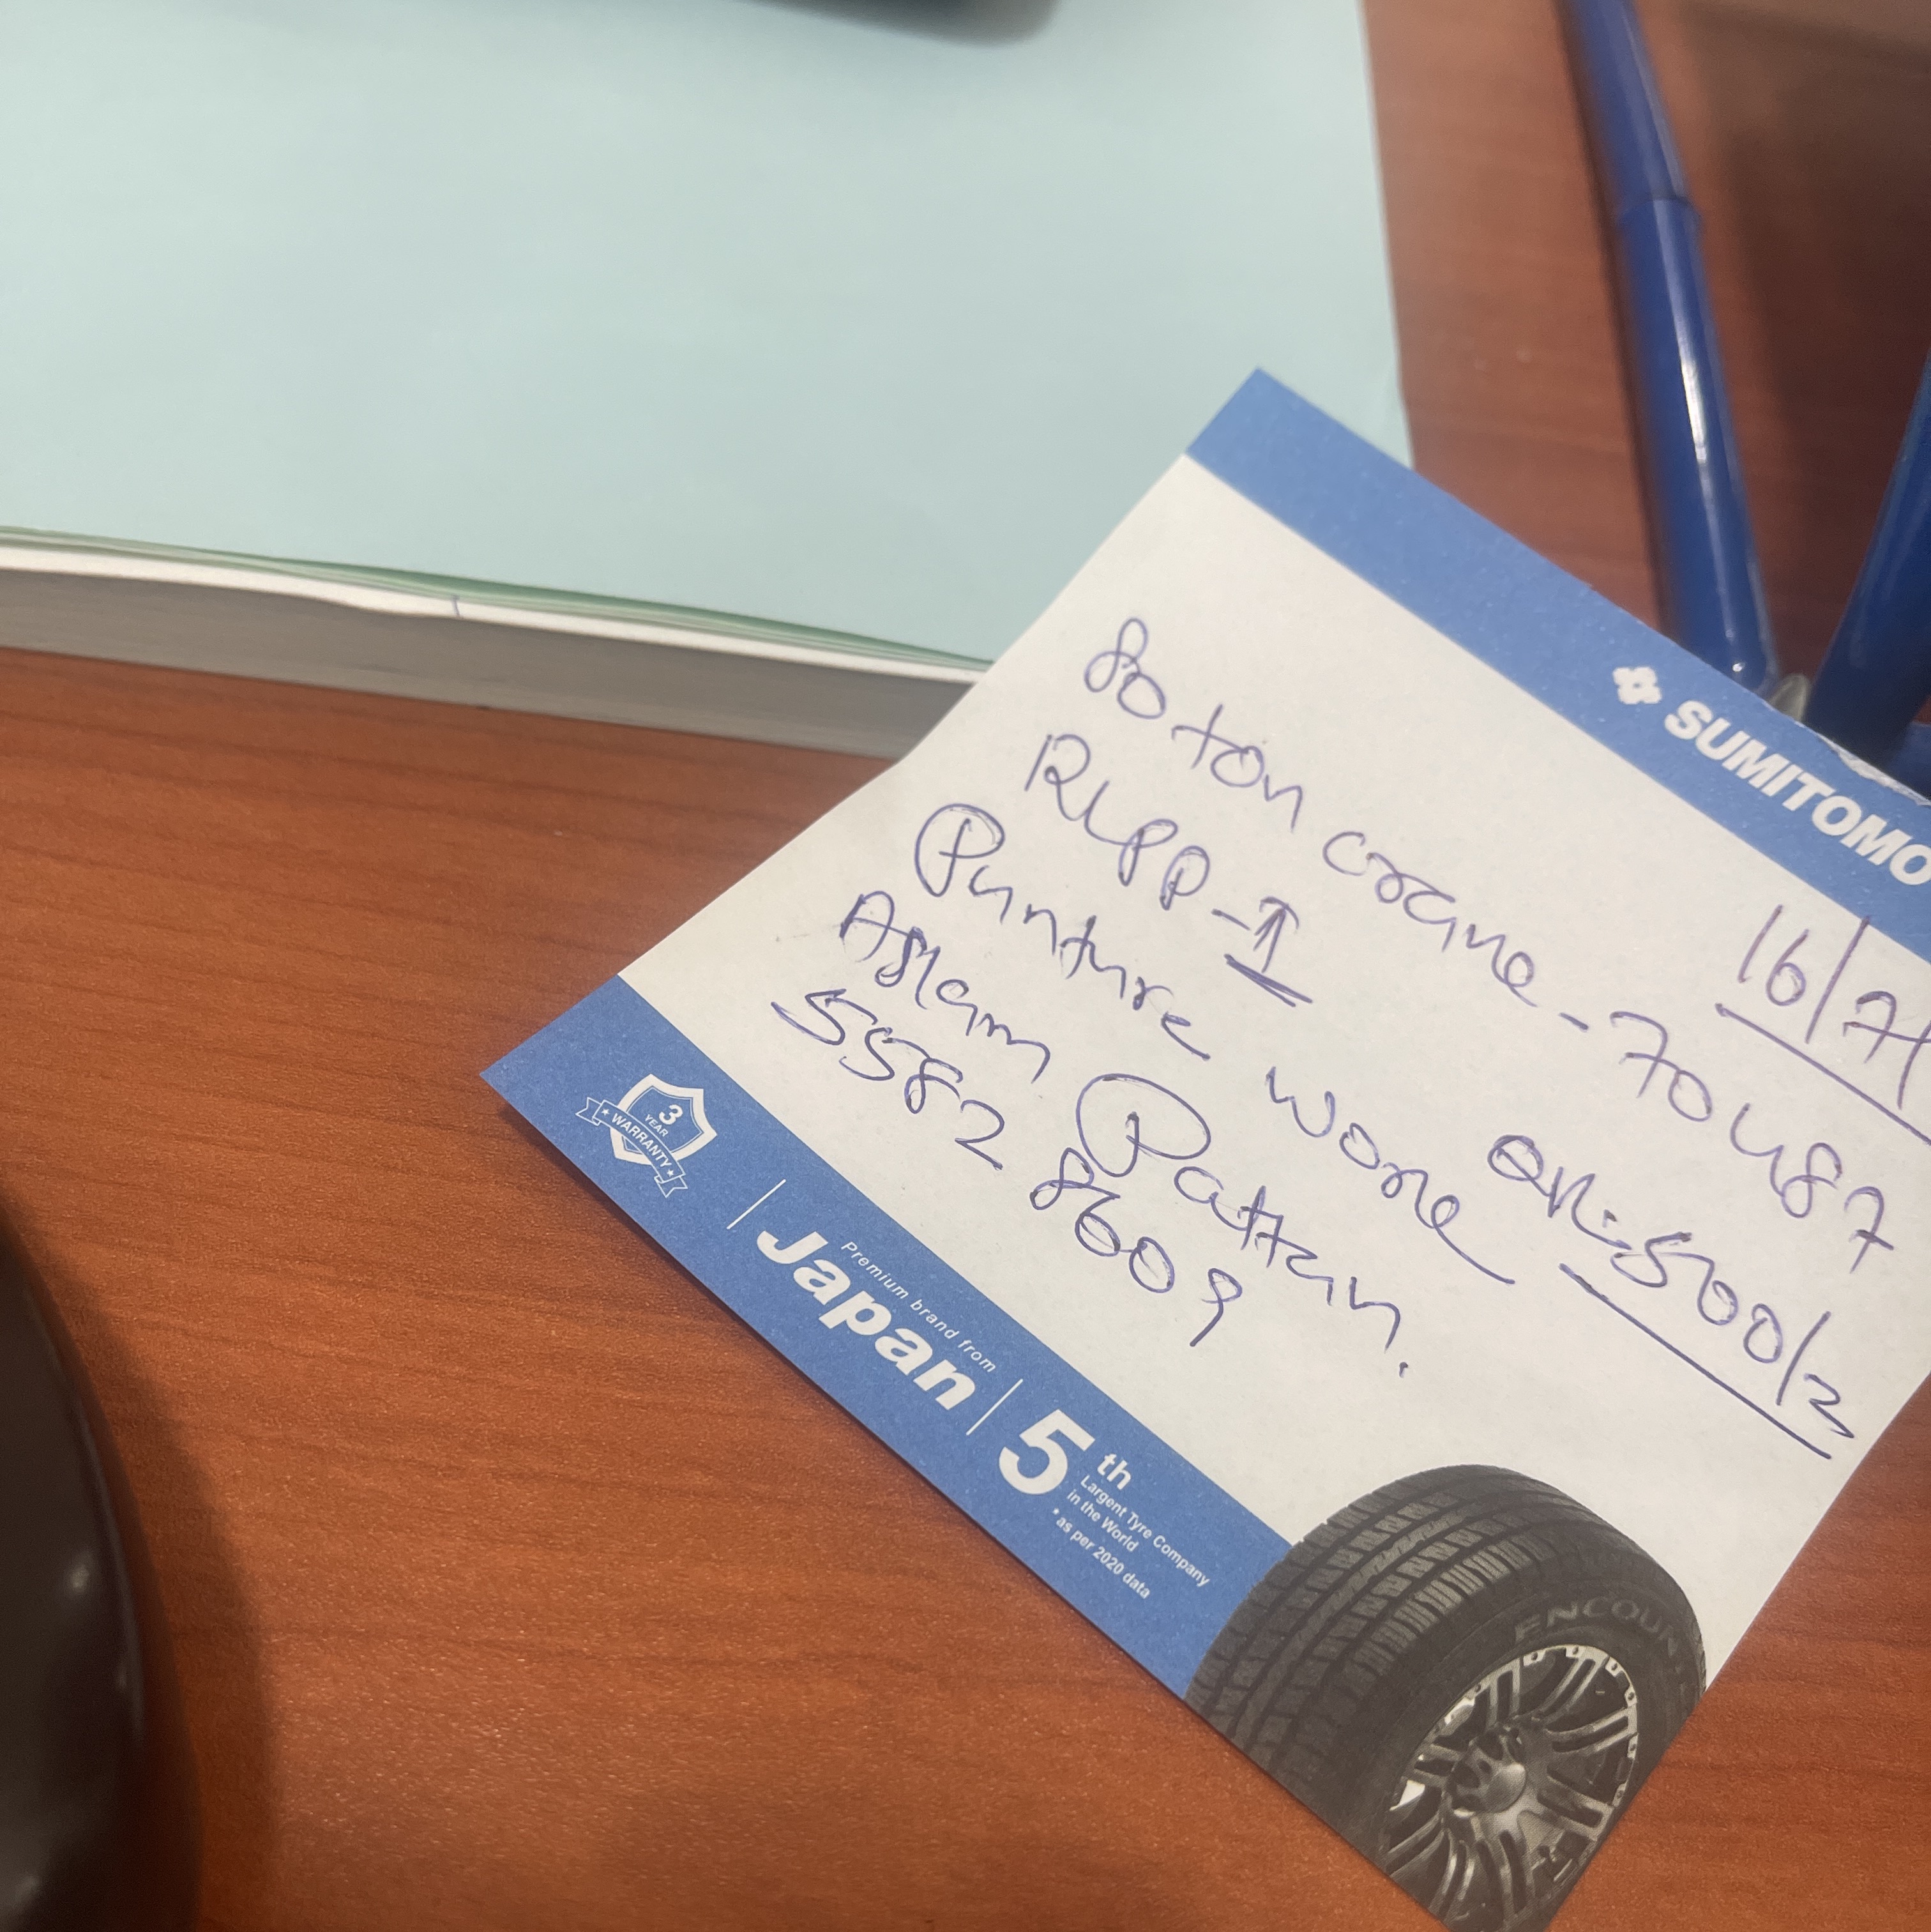 SUMITOMO
16/7/
80 ton crane - 70487
RLPP-1
Punture wore QR.500/2
Aslam Pattan.
5582 8609
3
YEAR
WARRANTY
Premium brand from
Japan
5th
Largent Tyre Company
in the World
* as per 2020 data
ENCOUN